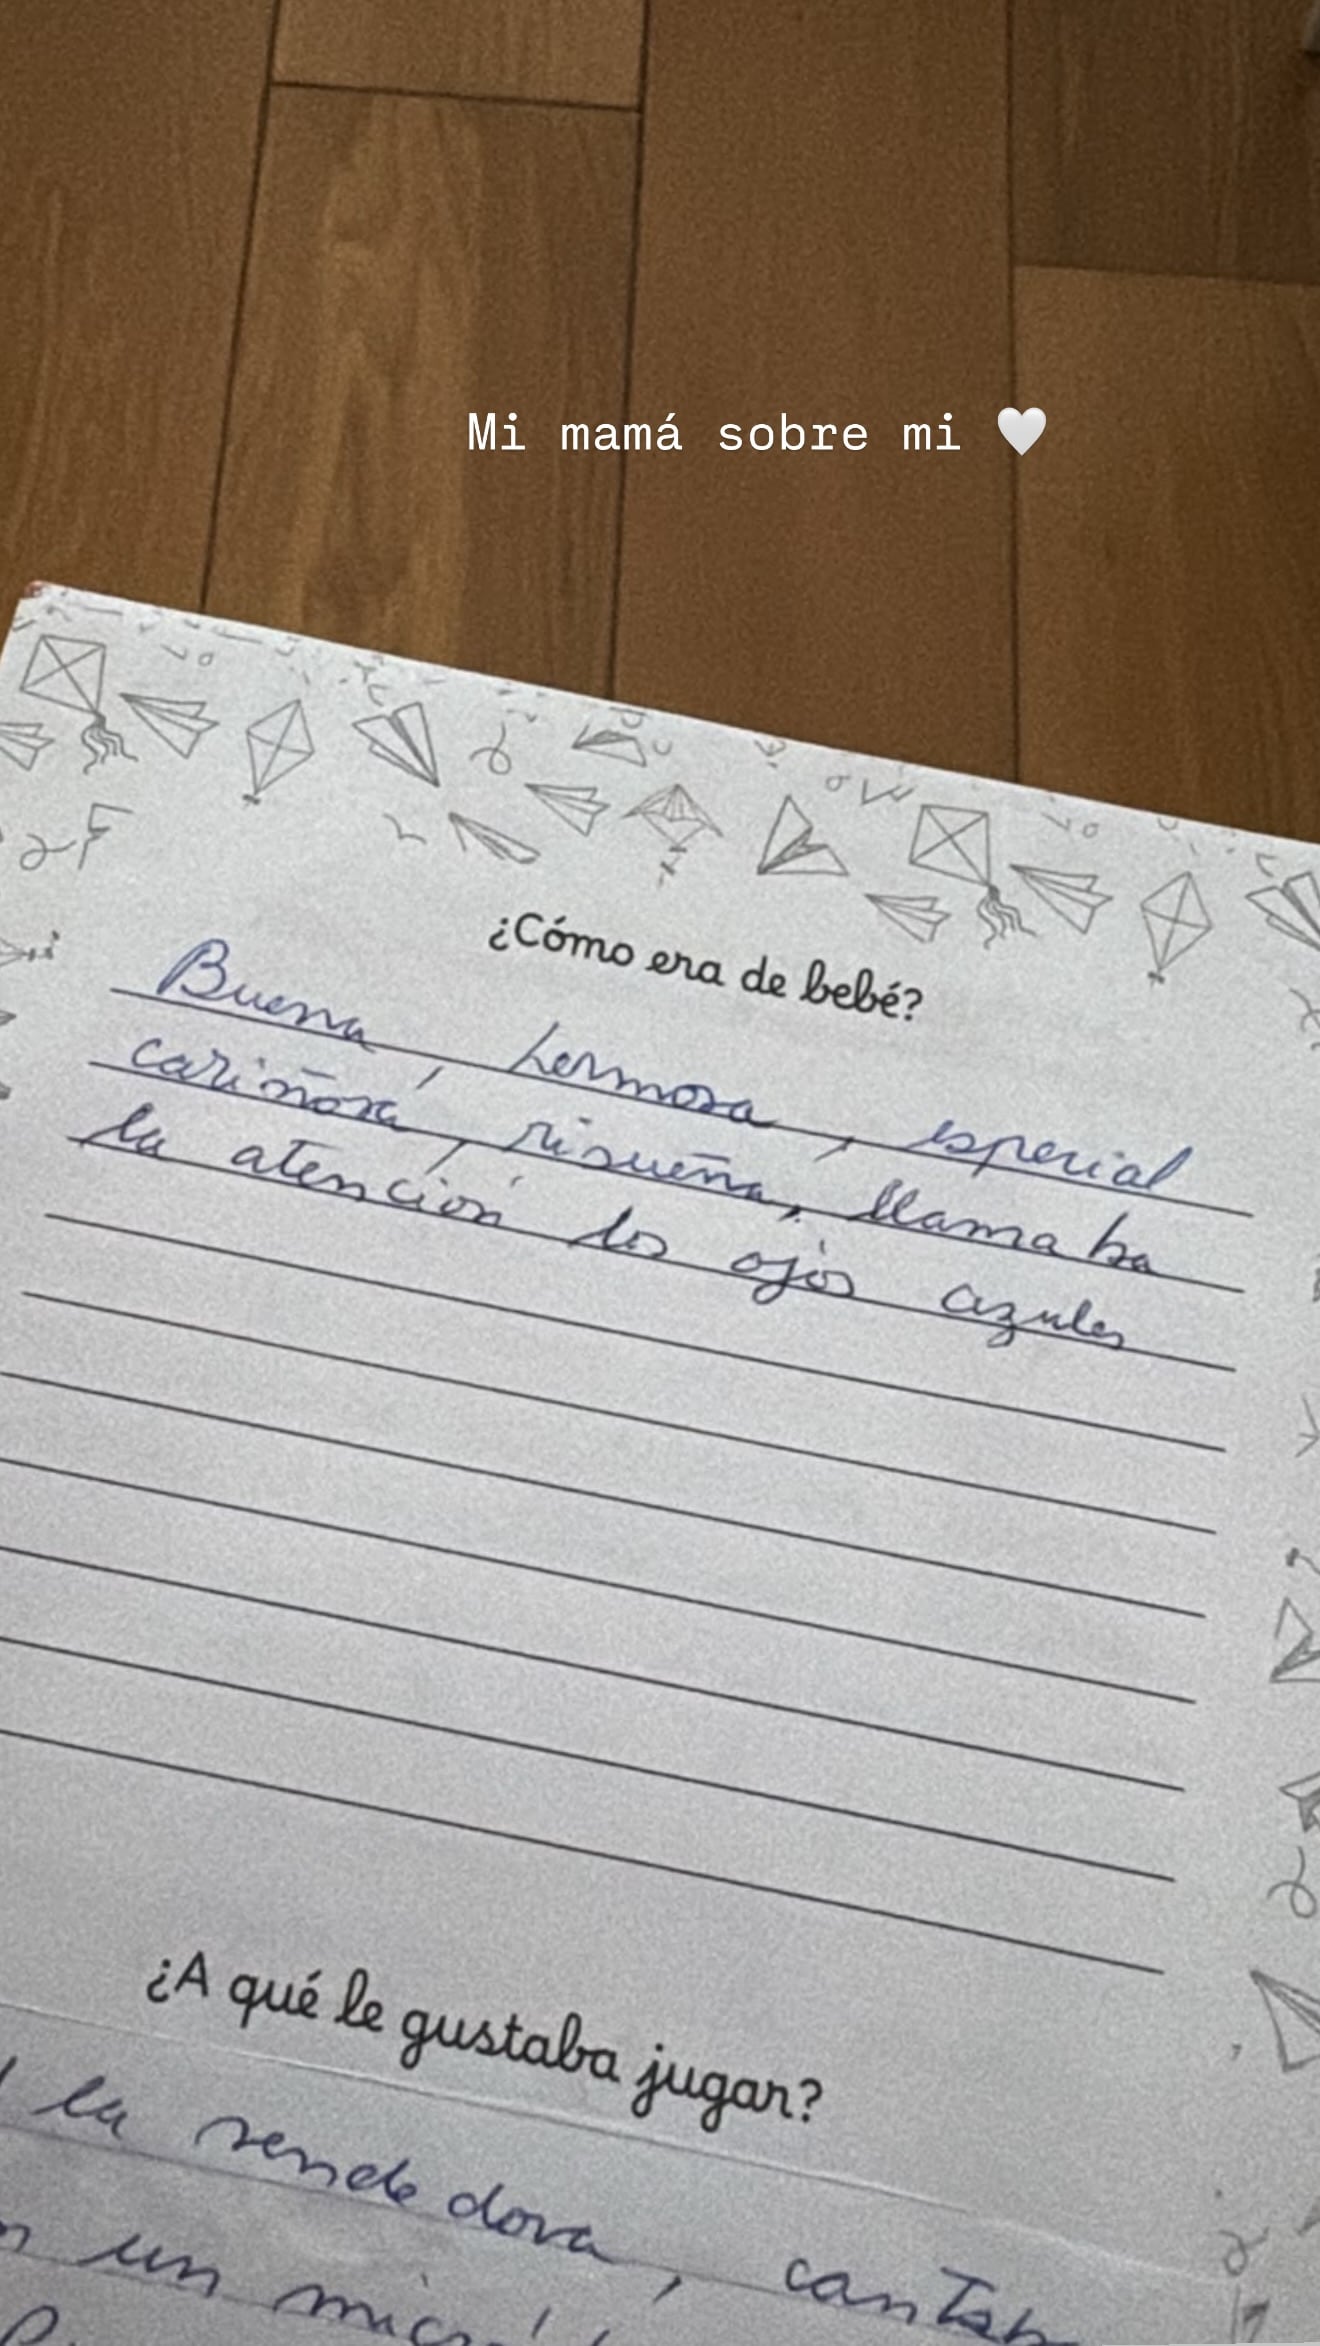 Mi mamá sobre mi 🤍
¿Cómo era de bebé?
Buena, hermosa, especial
cariñosa, risueña, llamaba
la atención los ojos azules
¿A qué le gustaba jugar?
la vendedora, cantab
un micró